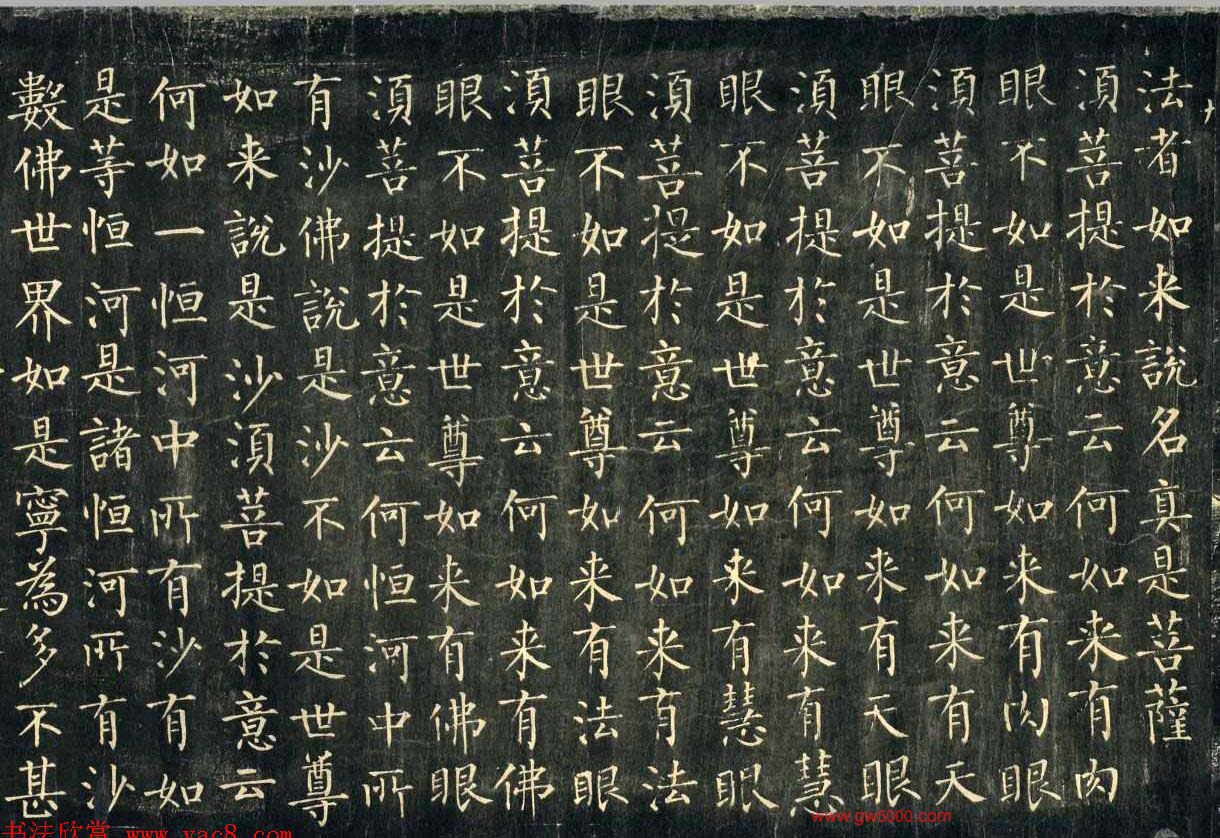 法者如来說名真是菩薩
須菩提於意云何如来有肉
眼不如是世尊如来有肉眼
須菩提於意云何如来有天
眼不如是世尊如来有天眼
須菩提於意云何如来有慧
眼不如是世尊如来有慧眼
須菩提於意云何如来有法
眼不如是世尊如来有法眼
須菩提於意云何如来有佛
眼不如是世尊如来有佛眼
須菩提於意云何恒河中所
有沙佛說是沙不如是世尊
如来說是沙須菩提於意云
何如一恒河中所有沙有如
是等恒河是諸恒河所有沙
數佛世界如是寧為多不甚
书法欣赏 www.yac8.com
www.gw6000.com